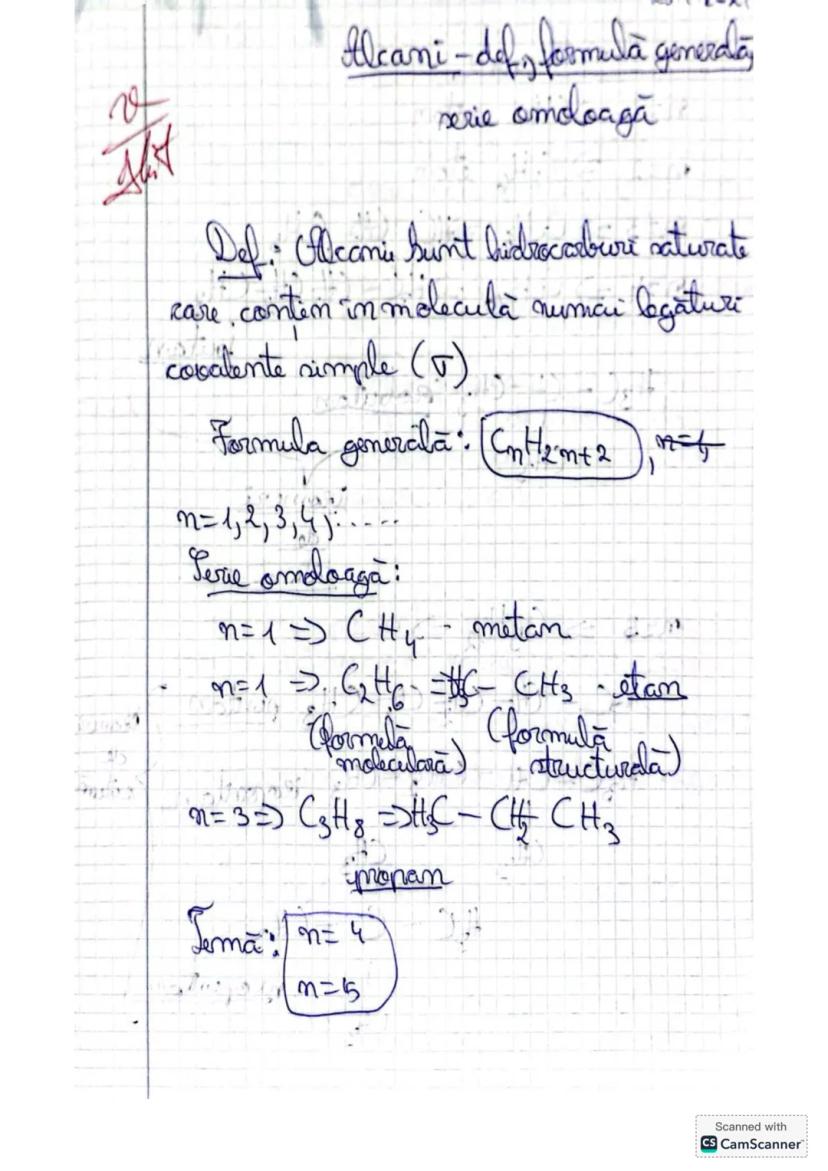 Alcani - def., formulă generală,
serie omoloagă
Def.: Alcanii sunt hidrocarburi saturate
care conțin în moleculă numai legături
covalente simple (σ)
Formula generală: CnH2n+2, n=1,
n=1,2,3,4,.....
Serie omoloagă:
n=1 => CH4 - metan
n=1 => C2H6 => H3C - CH3 - etan
(formulă moleculară) (formulă structurală)
n=3 => C3H8 => H3C - CH2 - CH3
propan
Temă: n=4
n=5
Scanned with
CS CamScanner